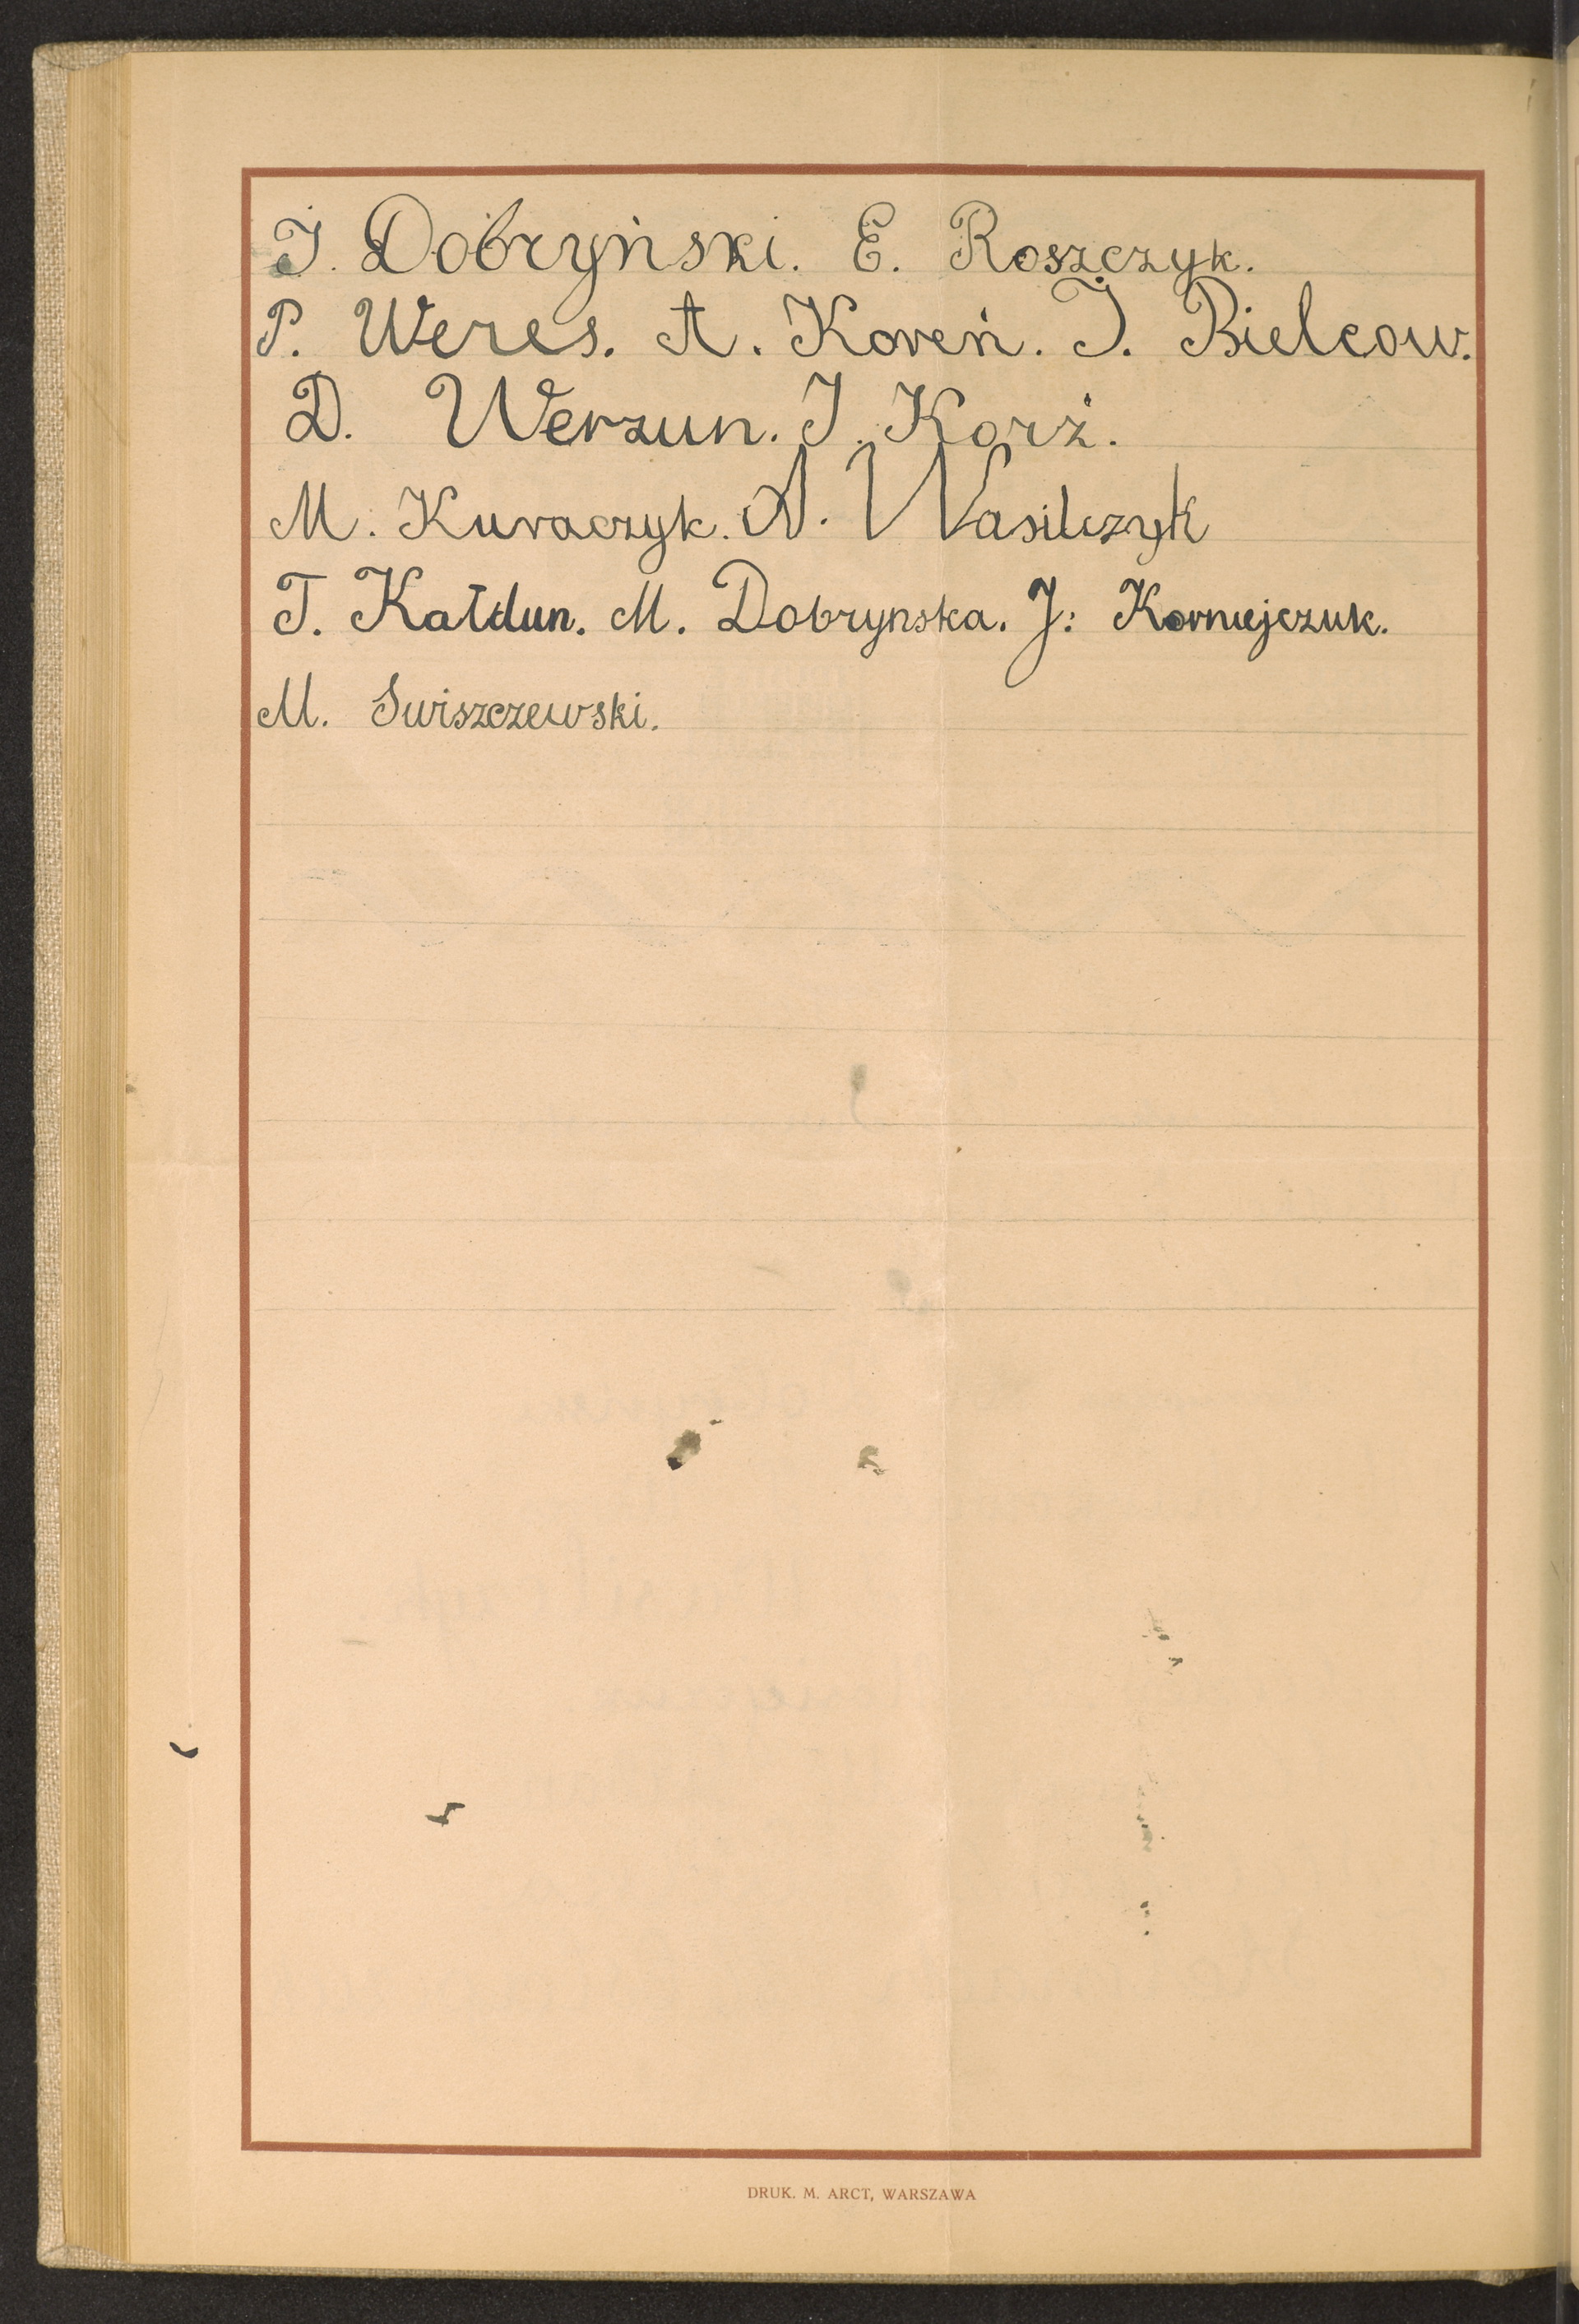 J. Dobryński. E. Roszczyk.
P. Weres. A. Koreń. J. Bielcow.
D. Werzun. J. Korż.
M. Kuraczyk. A. Wasilczyk
T. Kałdun. M. Dobrynska. J: Korniejczuk.
M. Swiszczewski.
DRUK. M. ARCT, WARSZAWA